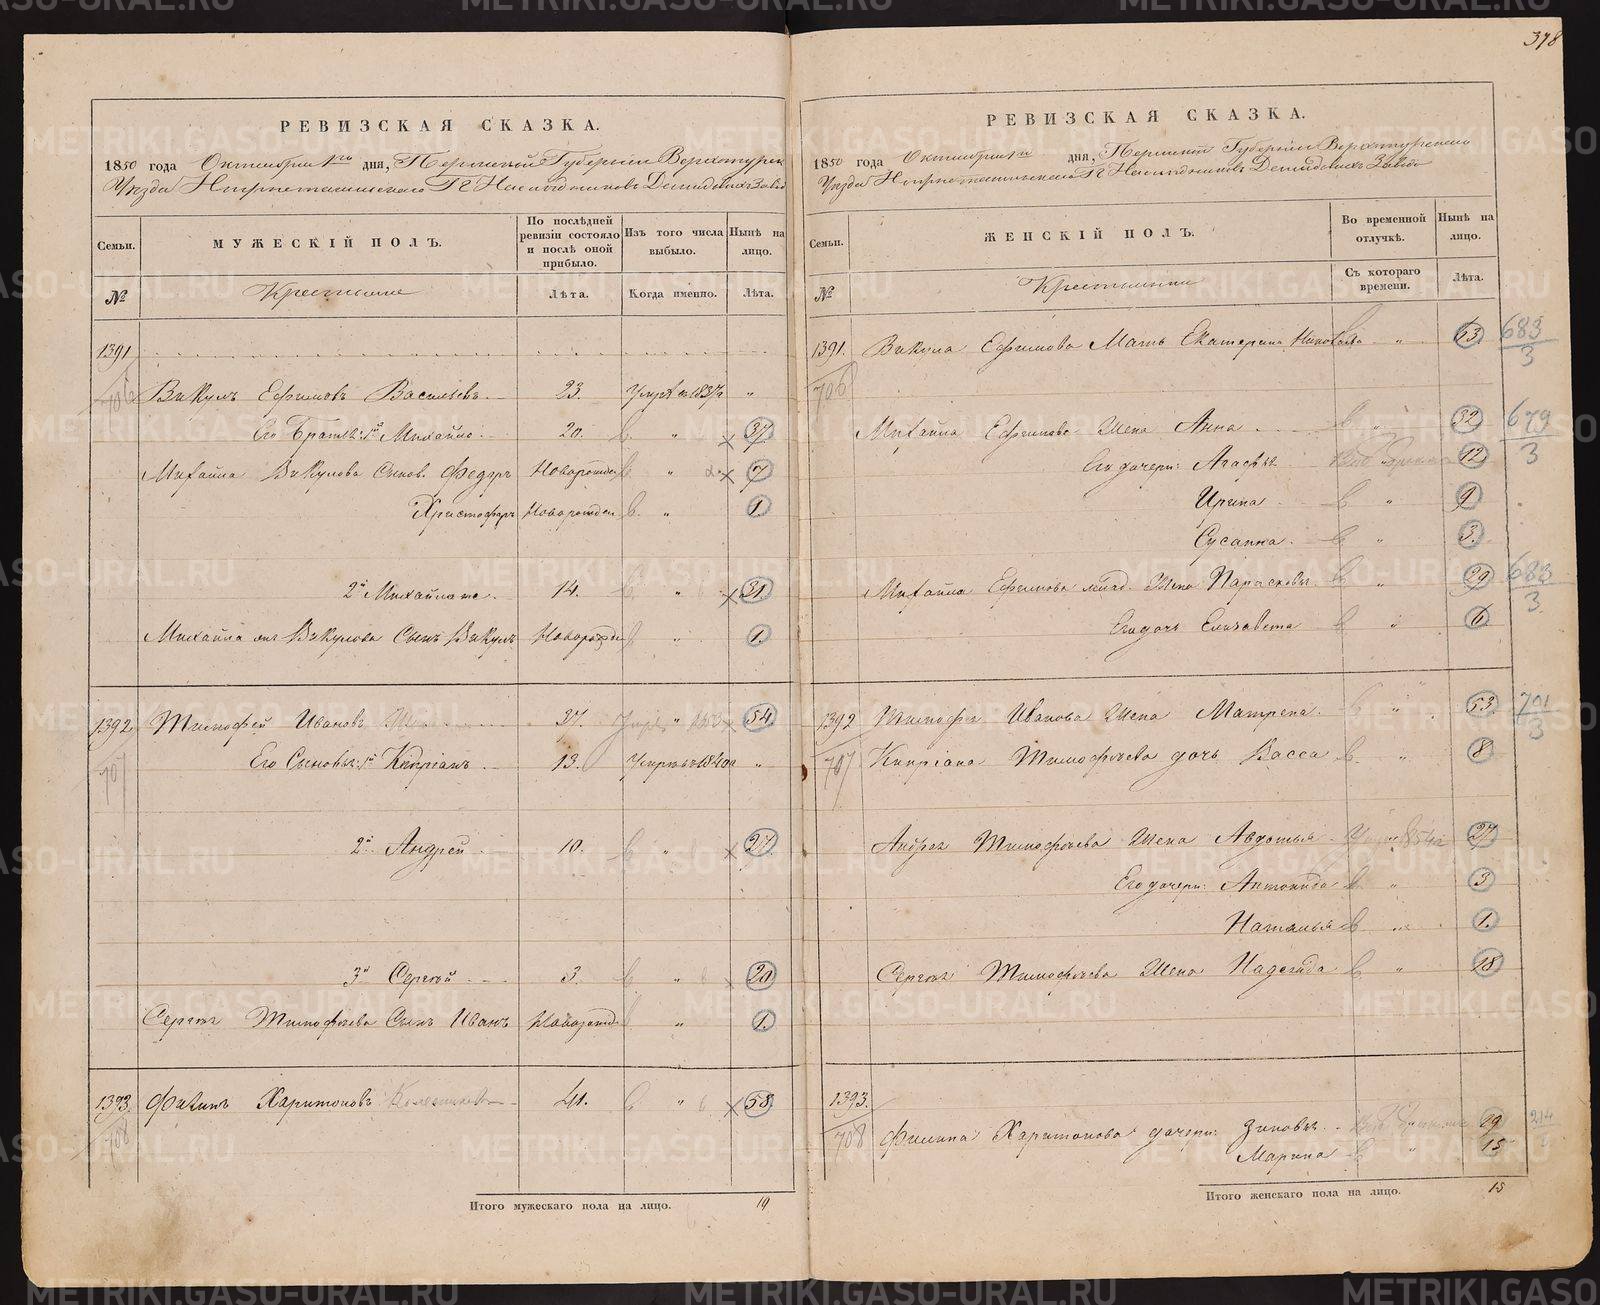 378
РЕВИЗСКАЯ СКАЗКА.
1850 года Октября 1го дня, Пермской Губернии Верхотурск
Уезда Нижнетагильского Гг Наследников Демидовых Завода
Семьи.
МУЖЕСКІЙ ПОЛЪ.
По послѣдней ревизіи состояло и послѣ оной прибыло.
Изъ того числа выбыло.
Нынѣ на лицо.
№
Крестьяне
Лѣта.
Когда именно.
Лѣта.
1391
706
Викулъ Ефимовъ Васильевъ 23. 1837 "
Его Братья: 1й Михайло 20. " 37
Михайла Викулова Сынов. Федоръ Новорожден " 7
Христофоръ Новорожден " 1.
2й Михайла же. 14. " 31.
Михайла Викулова Сынъ Викулъ Новорожде " 1.
1392 Тимофей Ивановъ 37. " 54
707
Его Сыновья: 1й Кипріанъ 13. Умре въ 1840м "
2й Андрей 10. " 27.
3й Сергѣй 3. " 20
Сергея Тимофѣева Сынъ Иванъ Новорожд " 1.
1393. Филипъ Харитоновъ 41. " 58
708
Итого мужескаго пола на лицо. 10
РЕВИЗСКАЯ СКАЗКА.
1850 года Октября 1го дня, Пермской Губерніи Верхотурскаго
Уезда Нижнетагильскаго Гг Наследниковъ Демидовыхъ Завода
Семьи.
ЖЕНСКІЙ ПОЛЪ.
Во временной отлучкѣ.
Нынѣ на лицо.
№
Крестьянки
Съ котораго времени.
Лѣта.
1391. Викула Ефимова Мать Екатерина " 63 683/3
706
Михайла Ефимова Жена Анна " 32 679/3
Его дочери: Агафья 12
Ирина " 9
Сусанна. " 3.
Михайла Ефимова млад. Жена Парасковья " 29 683/3
Его дочь Елизавета " 6
1392 Тимофея Иванова Жена Матрена. " 53 701/3
707
Кипріана Тимофѣева дочь Васса " 8
Андрея Тимофѣева Жена Авдотья 27
Его дочери: Антонида " 3
Наталья " 1.
Сергея Тимофѣева Жена Надежда " 18
1393.
708
Филипа Харитонова дочери: Зиновья 19
Марина " 15
Итого женскаго пола на лицо. 15
METRIKI.GASO-URAL.RU